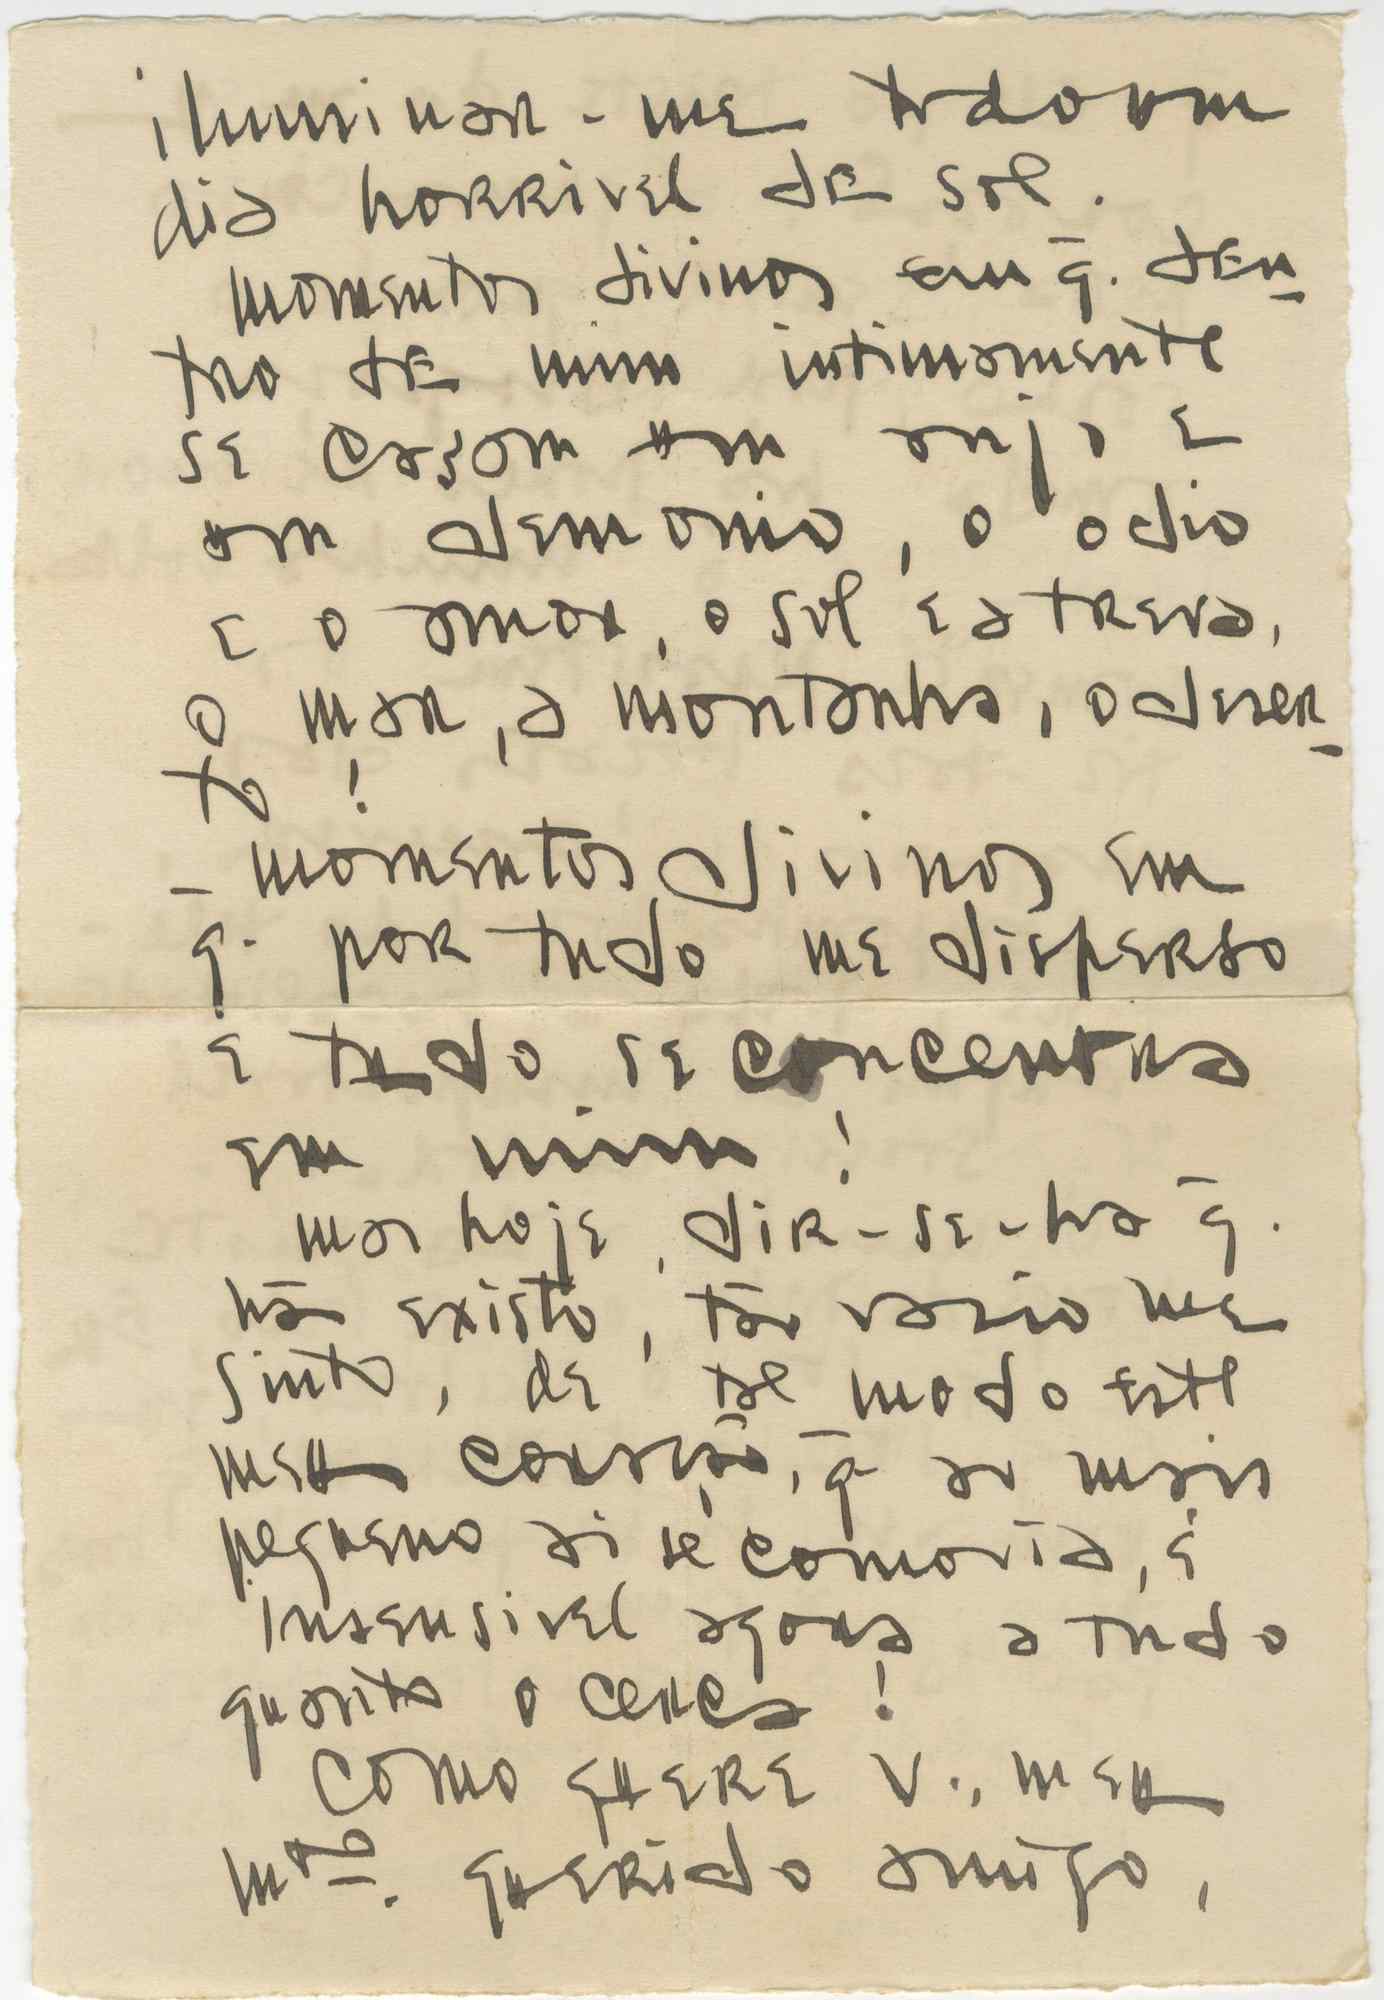 iluminar-me todo um
dia horrivel de sol.
momentos divinos em q̄. den-
tro de mim intimamente
se casam um anjo e
um demonio, o odio
e o amor, o sol e a treva,
o mar, a montanha, o deser-
to!
— momentos divinos em
q. por tudo me disperso
e tudo se concentra
em mim!
mas hoje, dir-se-ha q̄.
nã existo, tão vazio me
sinto, de tal modo este
meu coração, q̄ ao mais
pequeno ai se comovia, é
insensivel agora a tudo
quanto o cerca!
Como quere V., meu
mto. querido amigo,